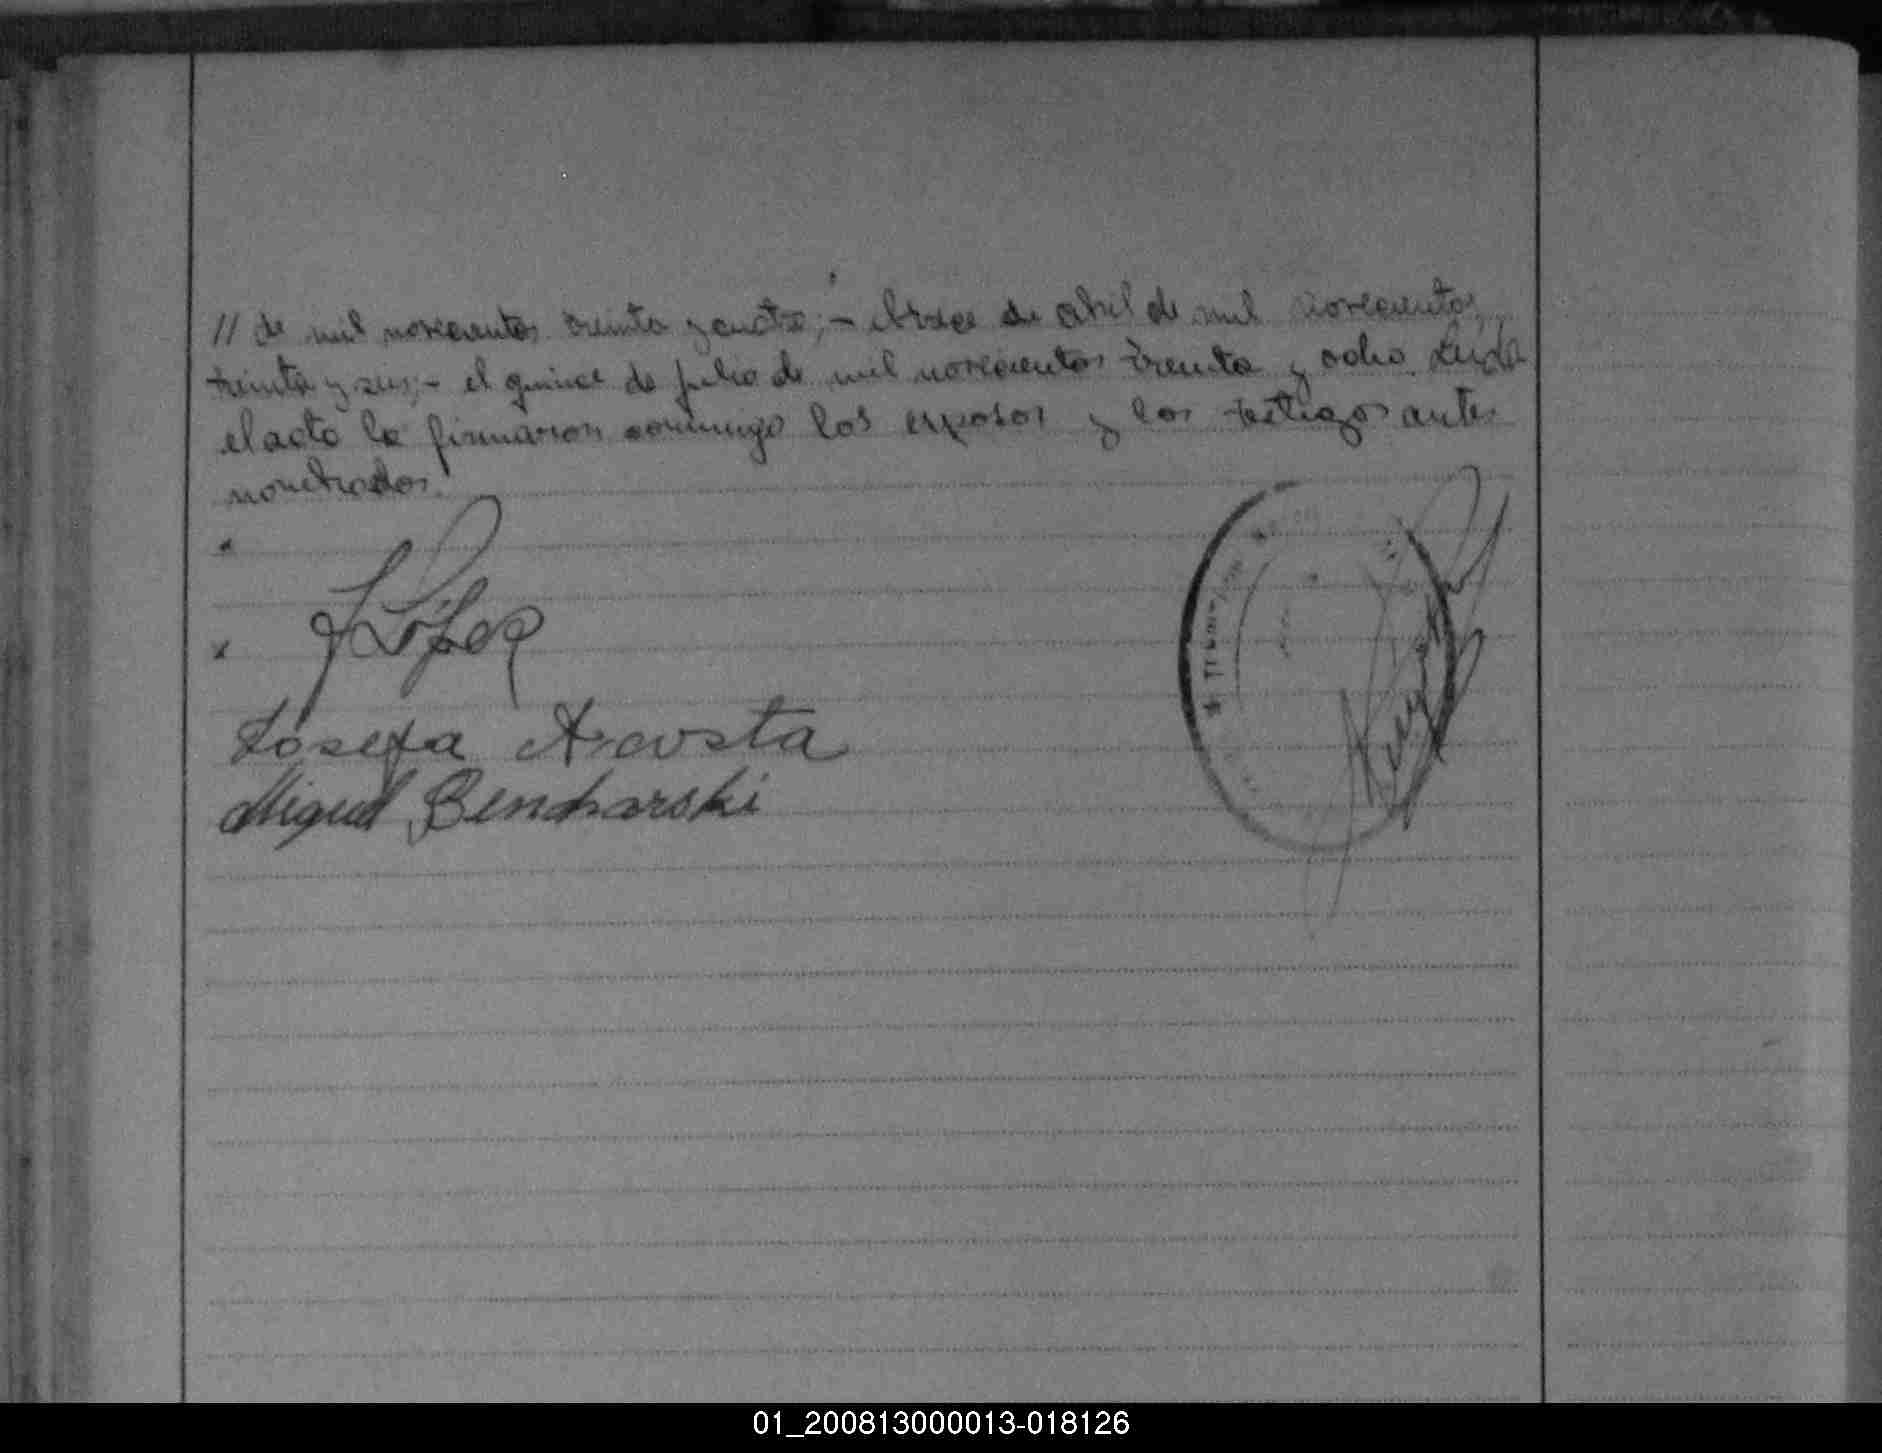 // de mil novecientos treinta y cuatro; - el trece de abril de mil novecientos
treinta y seis; - el quince de julio de mil novecientos treinta y ocho. Leída
el acta la firmaron conmigo los esposos y los testigos antes
nombrados.
JLópez
Josefa Acosta
Miguel Bencharski
01_200813000013-018126